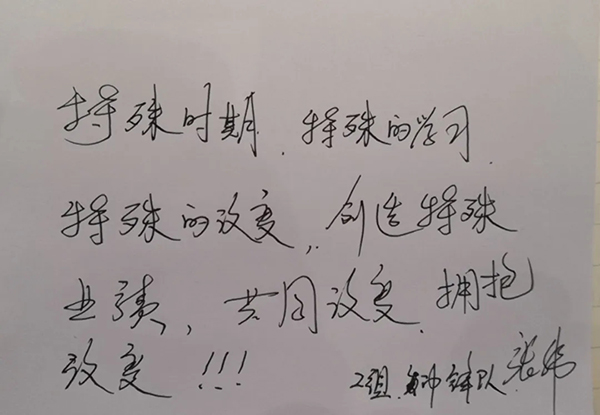 特殊时期、特殊的学习、
特殊的改变,创造特殊
业绩,共同改变、拥抱
改变!!!
2组 冲锋队 张伟